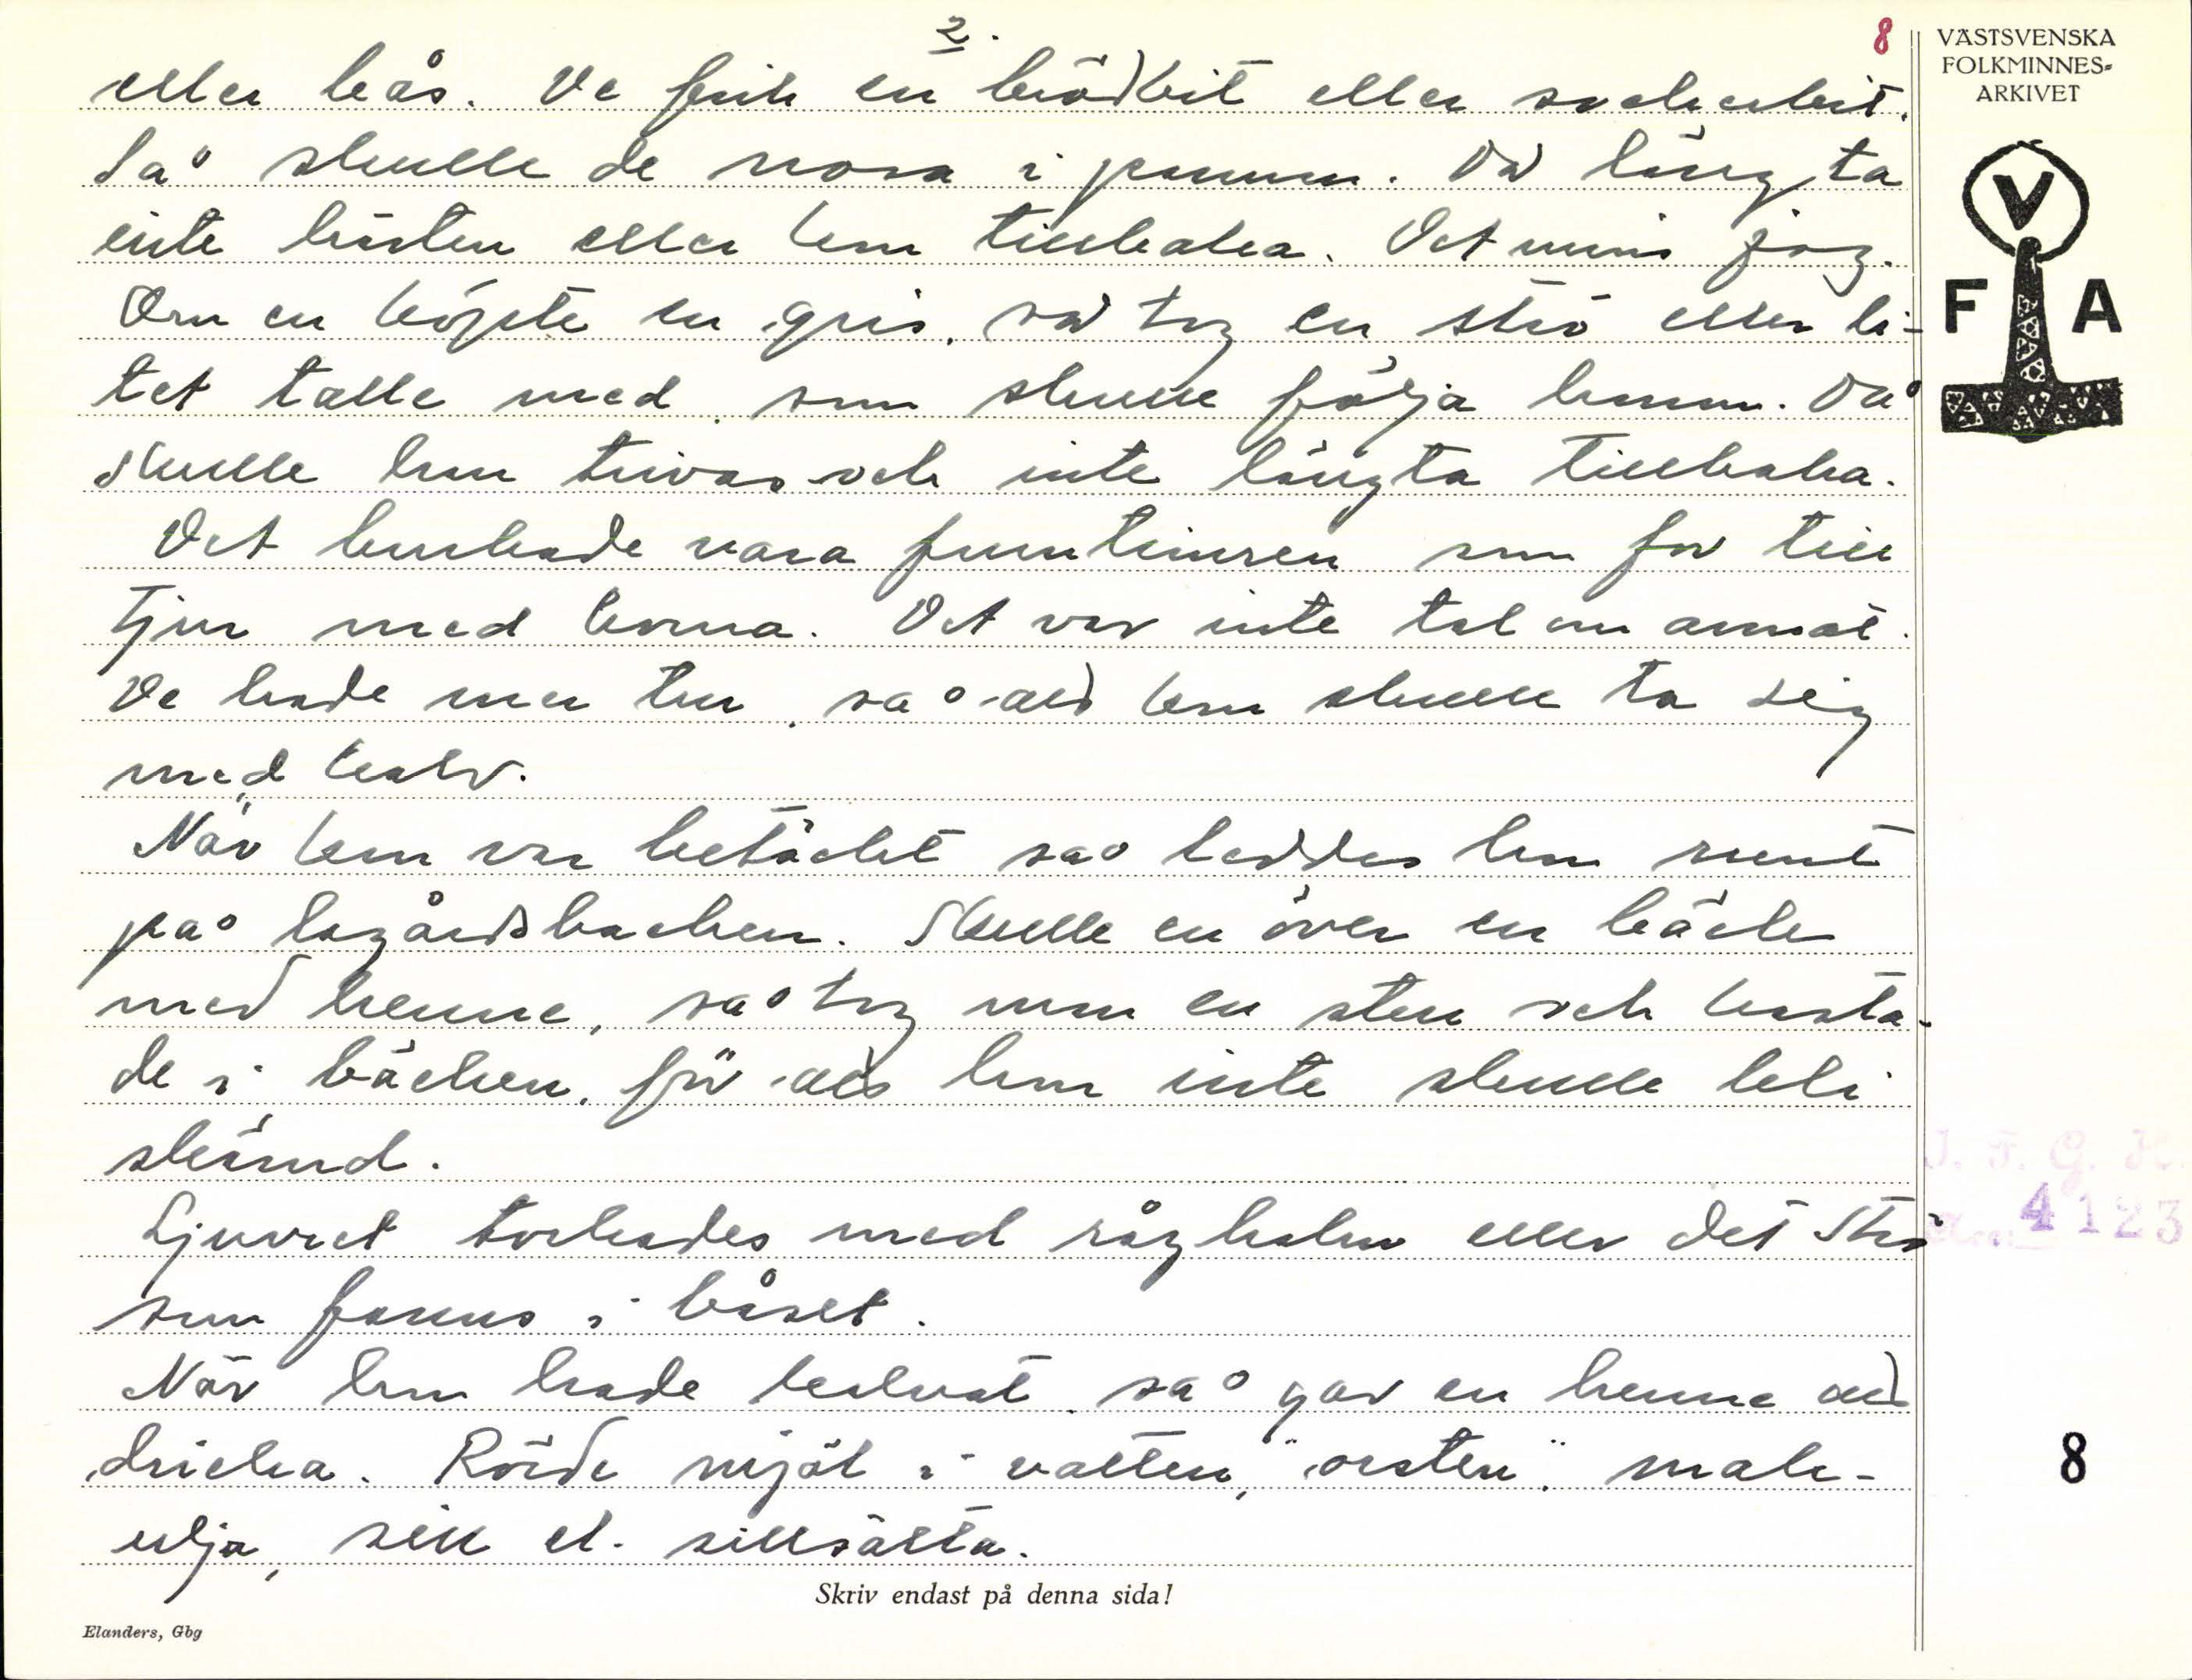 2.
8
eller bås. De fick en brödbit eller sockerbit.
Så skulle de nosa i pannan. Då längta
inte hästen eller kon tillbaka. Det minns jag.
Om en köpte en gris, så tog en strö eller li-
tet talle med, som skulle följa honom. Då
skulle han trivas och inte längta tillbaka.
Det brukade vara fruntimren som for till
tjur med korna. Det var inte tal om annat.
De hade mer tur, så att kon skulle ta sig
med kalv.
När kon var betäckt så leddes hon runt
på lagårdsbacken. Skulle en över en bäck
med henne, så tog man en sten och kasta-
de i bäcken, för att hon inte skulle bli
skämd.
Ljuvret torkades med råghalm eller det strö
som fanns i båset.
När hon hade kalvat, så gav en henne att
dricka. Rörde mjöl i vatten, "orsten", malk-
olja, sill el. sillsälta.
Skriv endast på denna sida!
Elanders, Gbg
VÄSTSVENSKA
FOLKMINNES-
ARKIVET
V
F A
I. F. G. H.
4123
8